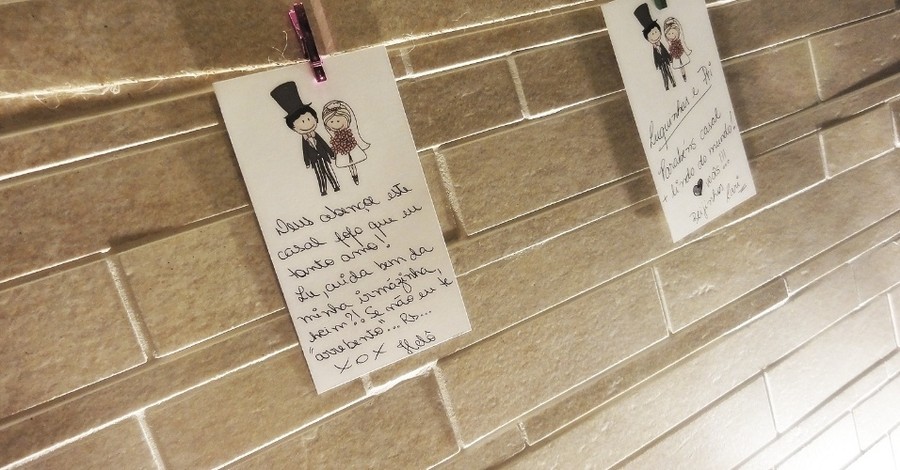 Deus abençoe este
casal fofo que eu
tanto amo!
Lu, cuida bem da
minha irmãzinha,
heim?! Se não eu te
"arrebento"... Rs...
XOX Helô
Luquinhas e Pri
Parabéns casal
+ lindo do mundo!
♥ vcs!!!
Beijinhos
Lari